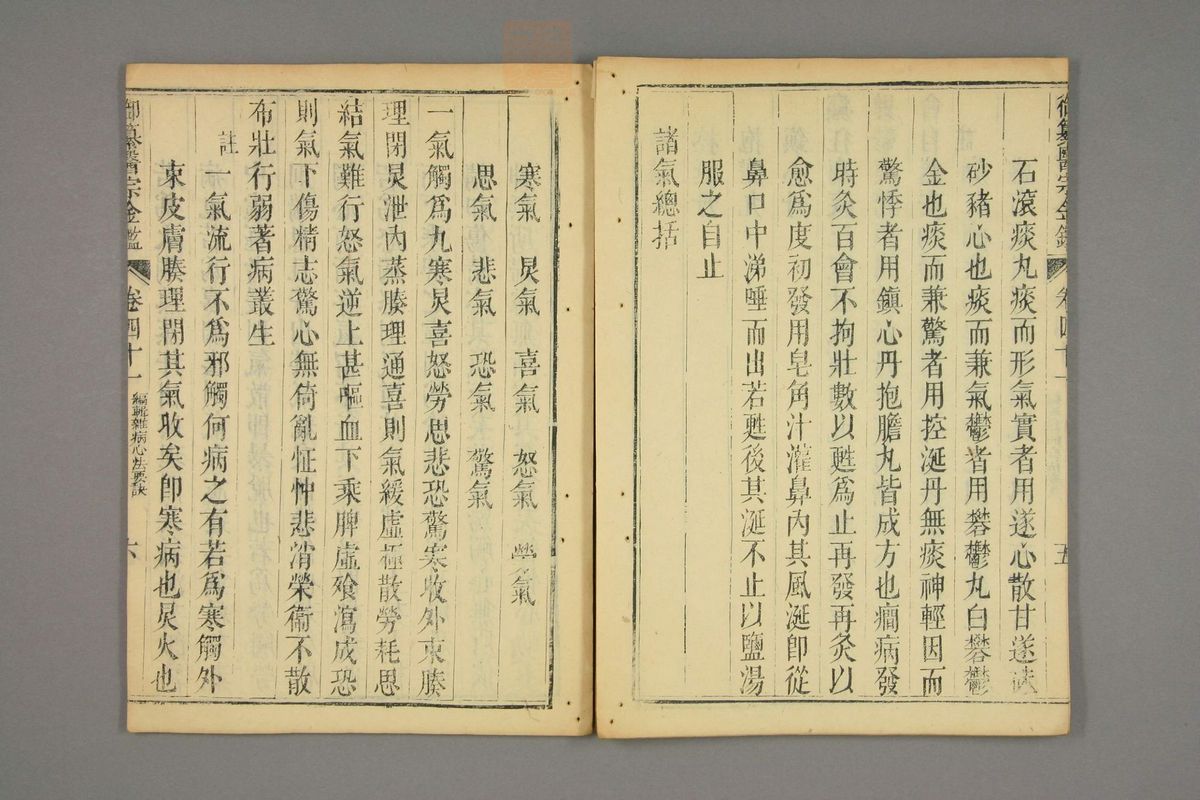 御纂醫宗金鑑
卷四十一
五
石滾痰丸痰而形氣實者用遂心散甘遂硃
砂豬心也痰而兼氣鬱者用礬鬱丸白礬鬱
金也痰而兼驚者用控涎丹無痰神輕因而
驚悸者用鎮心丹抱膽丸皆成方也癇病發
時灸百會不拘壯數以甦爲止再發再灸以
愈爲度初發用皂角汁灌鼻內其風涎卽從
鼻口中涕唾而出若甦後其涎不止以鹽湯
服之自止
諸氣總括
寒氣 炅氣 喜氣 怒氣 勞氣
思氣 悲氣 恐氣 驚氣
一氣觸爲九寒炅喜怒勞思悲恐驚寒收外束腠
理閉炅泄內蒸腠理通喜則氣緩虛極散勞耗思
結氣難行怒氣逆上甚嘔血下乘脾虛飧瀉成恐
則氣下傷精志驚心無倚亂怔忡悲消榮衞不散
布壯行弱著病叢生
註
一氣流行不爲邪觸何病之有若爲寒觸外
束皮膚腠理閉其氣收矣卽寒病也炅火也
御纂醫宗金鑑
卷四十一
編輯雜病心法要訣
六